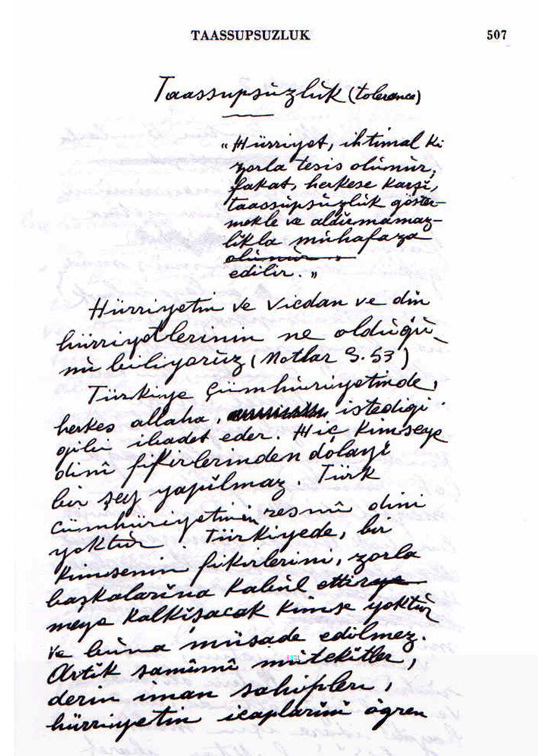 TAASSUPSUZLUK 507
Taassupsuzluk (tolerance)
"Hürriyet, ihtimal ki
zorla tesis olunur,
fakat, herkese karşı,
taassupsuzluk göster-
mekle ve aldırmamaz-
lıkla muhafaza
olunur
edilir."
Hürriyetin ve vicdan ve din
hürriyetlerinin ne olduğu-
nu biliyoruz (Notlar S. 53)
Türkiye Cumhuriyetinde,
herkes allaha, istediği
gibi ibadet eder. Hiç kimseye
dinî fikirlerinden dolayı
bir şey yapılmaz. Türk
cümhuriyetinin resmî dini
yoktur. Türkiyede, bir
kimsenin fikirlerini, zorla
başkalarına kabul ettirme
meye kalkışacak kimse yoktur
ve buna müsade edilmez.
Artık samimî mutekitler,
derin iman sahipleri,
hürriyetin icaplarını öğren